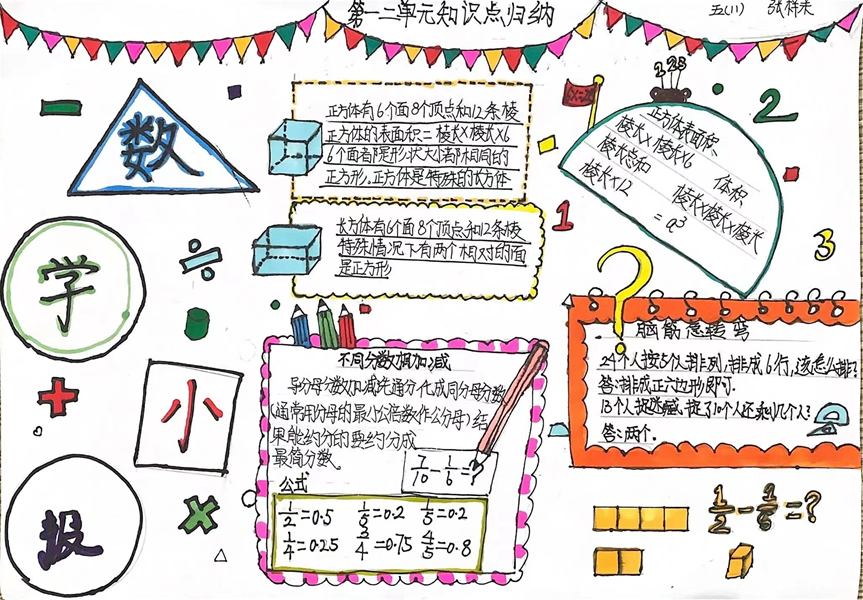 第一二单元知识点归纳
五(11)
数
学
小
报
正方体有6个面8个顶点和12条棱
正方体的表面积=棱长×棱长×6
6个面都是形状大小都相同的
正方形.正方体是特殊的长方体
长方体有6个面8个顶点和12条棱
特殊情况下有两个相对的面
是正方形
正方体表面积
棱长×棱长×6
棱长总和
棱长×12
体积
棱长×棱长×棱长
=a³
1
2
3
不同分数相加减
异分母分数加减先通分化成同分母分数
(通常用分母的最小公倍数作公分母)结
果能约分的要约分成
最简分数.
7/10-1/6=?
公式
1/2=0.5 1/5=0.2
1/4=0.25 3/4=0.75 4/5=0.8
脑筋急转弯
24个人按5个人排列,排成6行,该怎么排?
答:排成正六边形即可.
13个人捉迷藏.捉了10个人还剩几个人?
答:两个.
=?